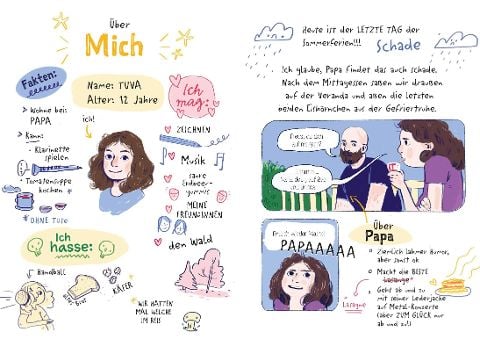 Über
Mich
Fakten:
> Wohne bei:
PAPA
> Kann:
- Klarinette
spielen
- Tomatensuppe
kochen
*OHNE Tüte
Name: TUVA
Alter: 12 Jahre
ich!
Ich
mag:
ZEICHNEN
Musik
saure
Erdbeer-
gummis
MEINE
FREUNDINNEN
den Wald
Ich
hasse:
Handball
Brot
KÄFER
WIR HATTEN
MAL WELCHE
IM REIS
Heute ist der LETZTE TAG der
Sommerferien!!!
Schade
Ich glaube, Papa findet das auch schade.
Nach dem Mittagessen saßen wir draußen
auf der Veranda und aßen die letzten
beiden Eishörnchen aus der Gefriertruhe.
PAPAAAAA
Über
Papa
Ziemlich lahmer Humor,
aber sonst ok
Macht die BESTE
Lasange
Lasagne
Geht ab und zu
mit seiner Lederjacke
auf Metal-Konzerte
(aber ZUM GLÜCK nur
ab und zu!)